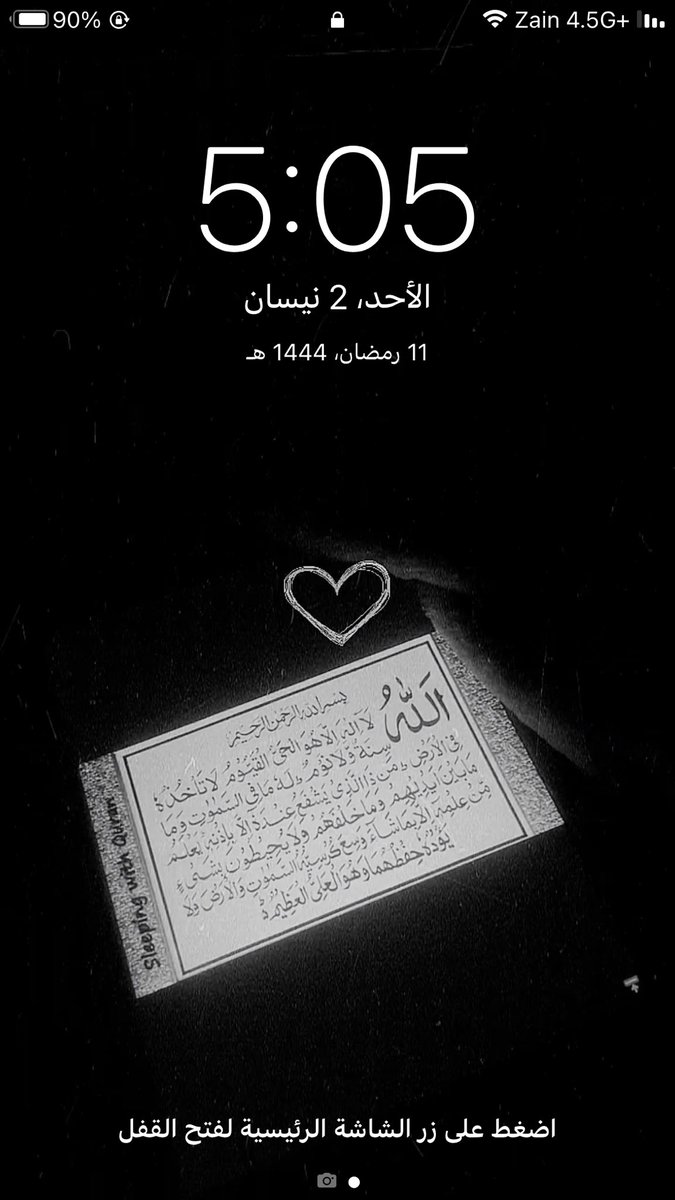 90%
Zain 4.5G+
5:05
الأحد، 2 نيسان
11 رمضان، 1444 هـ
بسم الله الرحمن الرحيم
اَللّٰهُ لَآ اِلٰهَ اِلَّا هُوَ الْحَیُّ الْقَیُّوْمُ لَا تَاْخُذُهٗ
سِنَةٌ وَّلَا نَوْمٌ لَهٗ مَا فِی السَّمٰوٰتِ وَمَا
فِی الْاَرْضِ مَنْ ذَا الَّذِیْ یَشْفَعُ عِنْدَهٗ اِلَّا بِاِذْنِهٖ یَعْلَمُ
مَا بَیْنَ اَیْدِیْهِمْ وَمَا خَلْفَهُمْ وَلَا یُحِیْطُوْنَ بِشَیْءٍ
مِّنْ عِلْمِهٖٓ اِلَّا بِمَا شَآءَ وَسِعَ كُرْسِیُّهُ السَّمٰوٰتِ وَالْاَرْضَ وَلَا
یَـُٔوْدُهٗ حِفْظُهُمَا وَهُوَ الْعَلِیُّ الْعَظِیْمُ
Sleeping with Quran
اضغط على زر الشاشة الرئيسية لفتح القفل